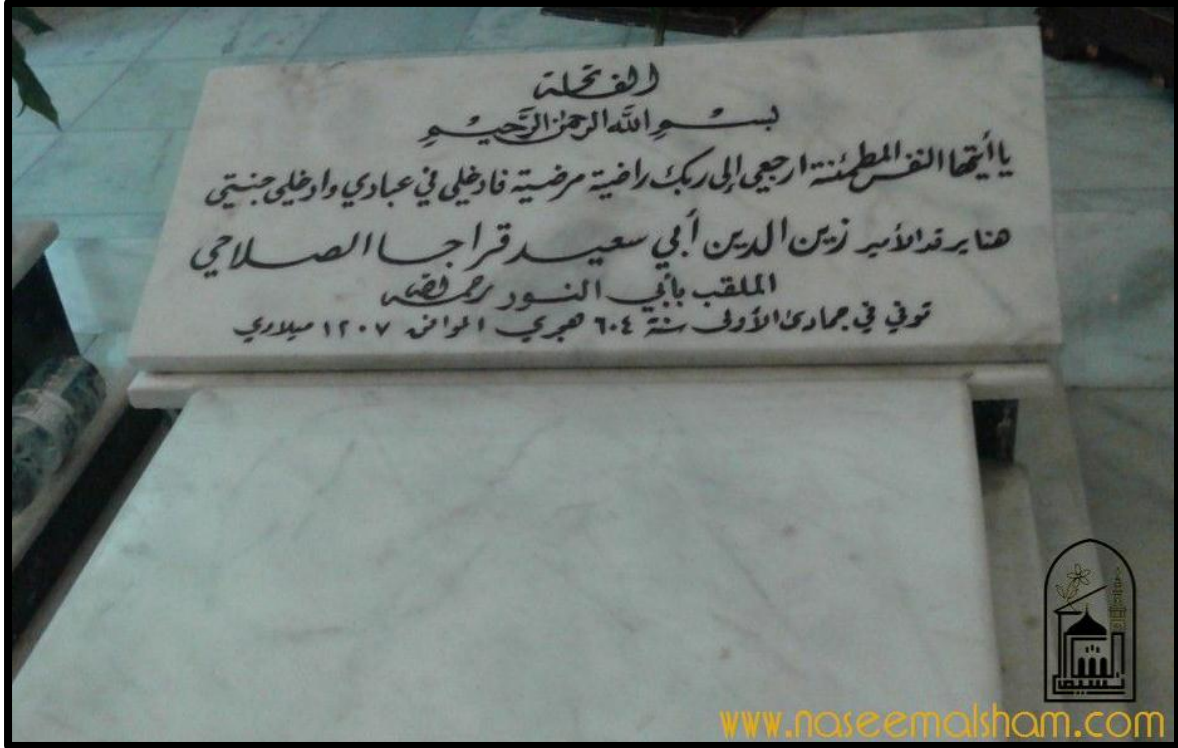 الفاتحة
بسم الله الرحمن الرحيم
يا أيتها النفس المطمئنة ارجعي إلى ربك راضية مرضية فادخلي في عبادي وادخلي جنتي
هنا يرقد الأمير زين الدين أبي سعيد قراجا الصلاحي
الملقب بأبي النور رحمه الله
توفي في جمادى الأولى سنة ٦٠٤ هجري الموافق ١٢٠٧ ميلادي
نسيم
www.naseemalsham.com